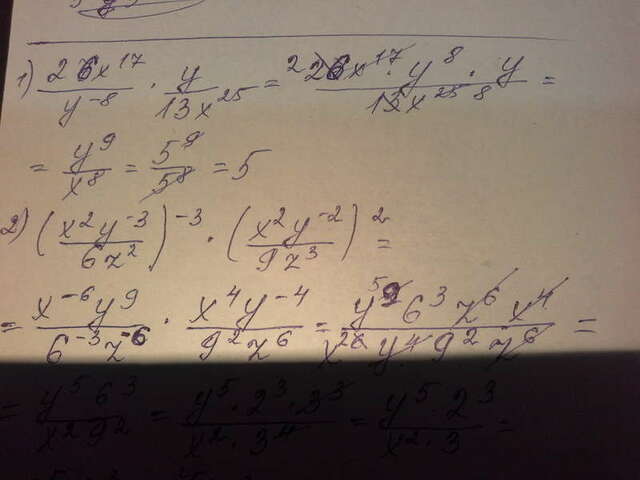 1) 26x^17/y^-8 · y/13x^25 = 2 26x^17 · y^8 · y/13x^25 8 =
= y^9/x^8 = 5^9/5^8 = 5
2) (x^2y^-3/6z^2)^-3 · (x^2y^-2/9z^3)^2 =
= x^-6y^9/6^-3z^-6 · x^4y^-4/9^2z^6 = y^5 9 6^3 z^6 x^4/x^26 y^4 9^2 z^6 =
= y^5 6^3/x^2 9^2 = y^5 · 2^3 · 3^3/x^2 · 3^4 = y^5 · 2^3/x^2 · 3 =